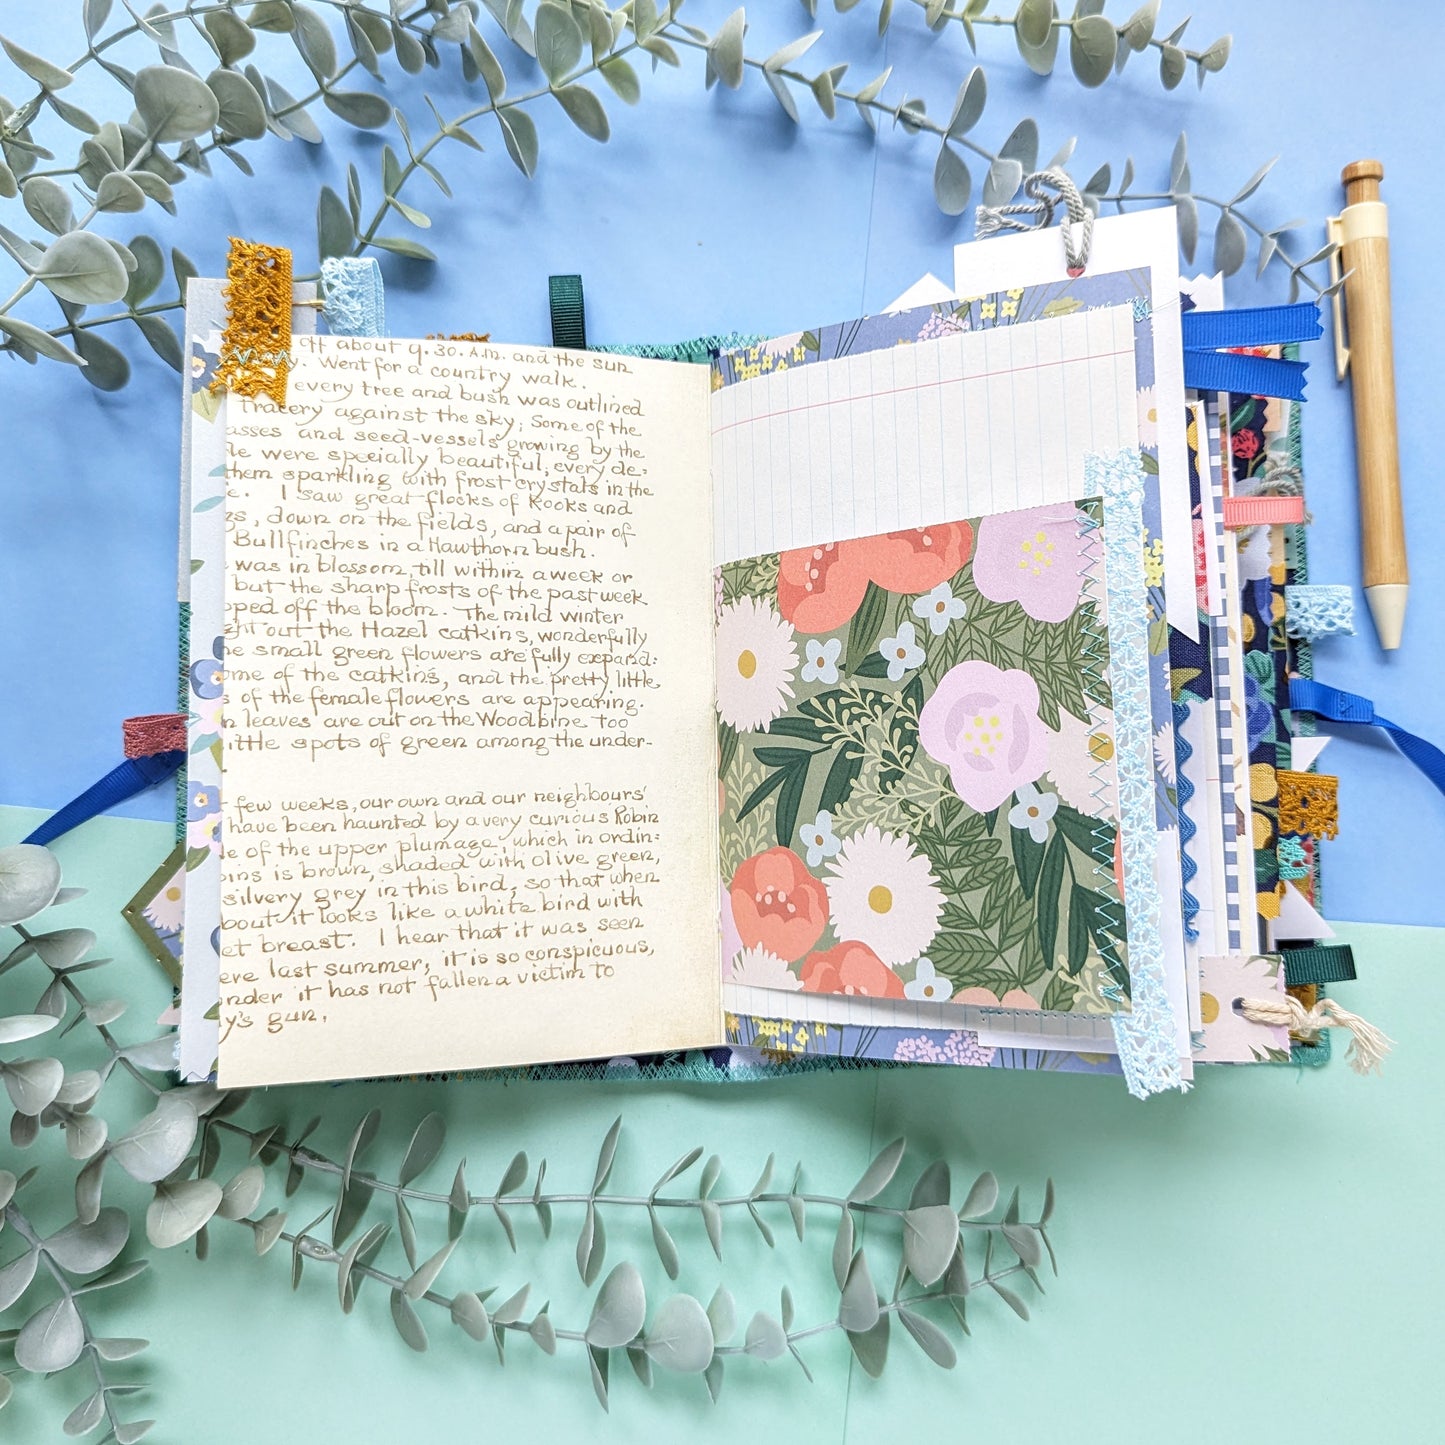 off about 9.30. A.M. and the sun
Went for a country walk.
every tree and bush was outlined
tracery against the sky; Some of the
asses and seed-vessels growing by the
le were specially beautiful, every de:
them sparkling with frost crystals in the
e. I saw great flocks of Rooks and
gs, down on the fields, and a pair of
Bullfinches in a Hawthorn bush.
was in blossom till within a week or
but the sharp frosts of the past week
pped off the bloom. The mild winter
ght out the Hazel catkins, wonderfully
he small green flowers are fully expand:
ome of the catkins, and the pretty little
s of the female flowers are appearing.
n leaves are out on the Woodbine too
ittle spots of green among the under-
few weeks, our own and our neighbours'
have been haunted by a very curious Robin
e of the upper plumage, which in ordin:
bins is brown, shaded with olive green,
silvery grey in this bird, so that when
bout it looks like a white bird with
et breast. I hear that it was seen
ere last summer, it is so conspicuous,
onder it has not fallen a victim to
y's gun.